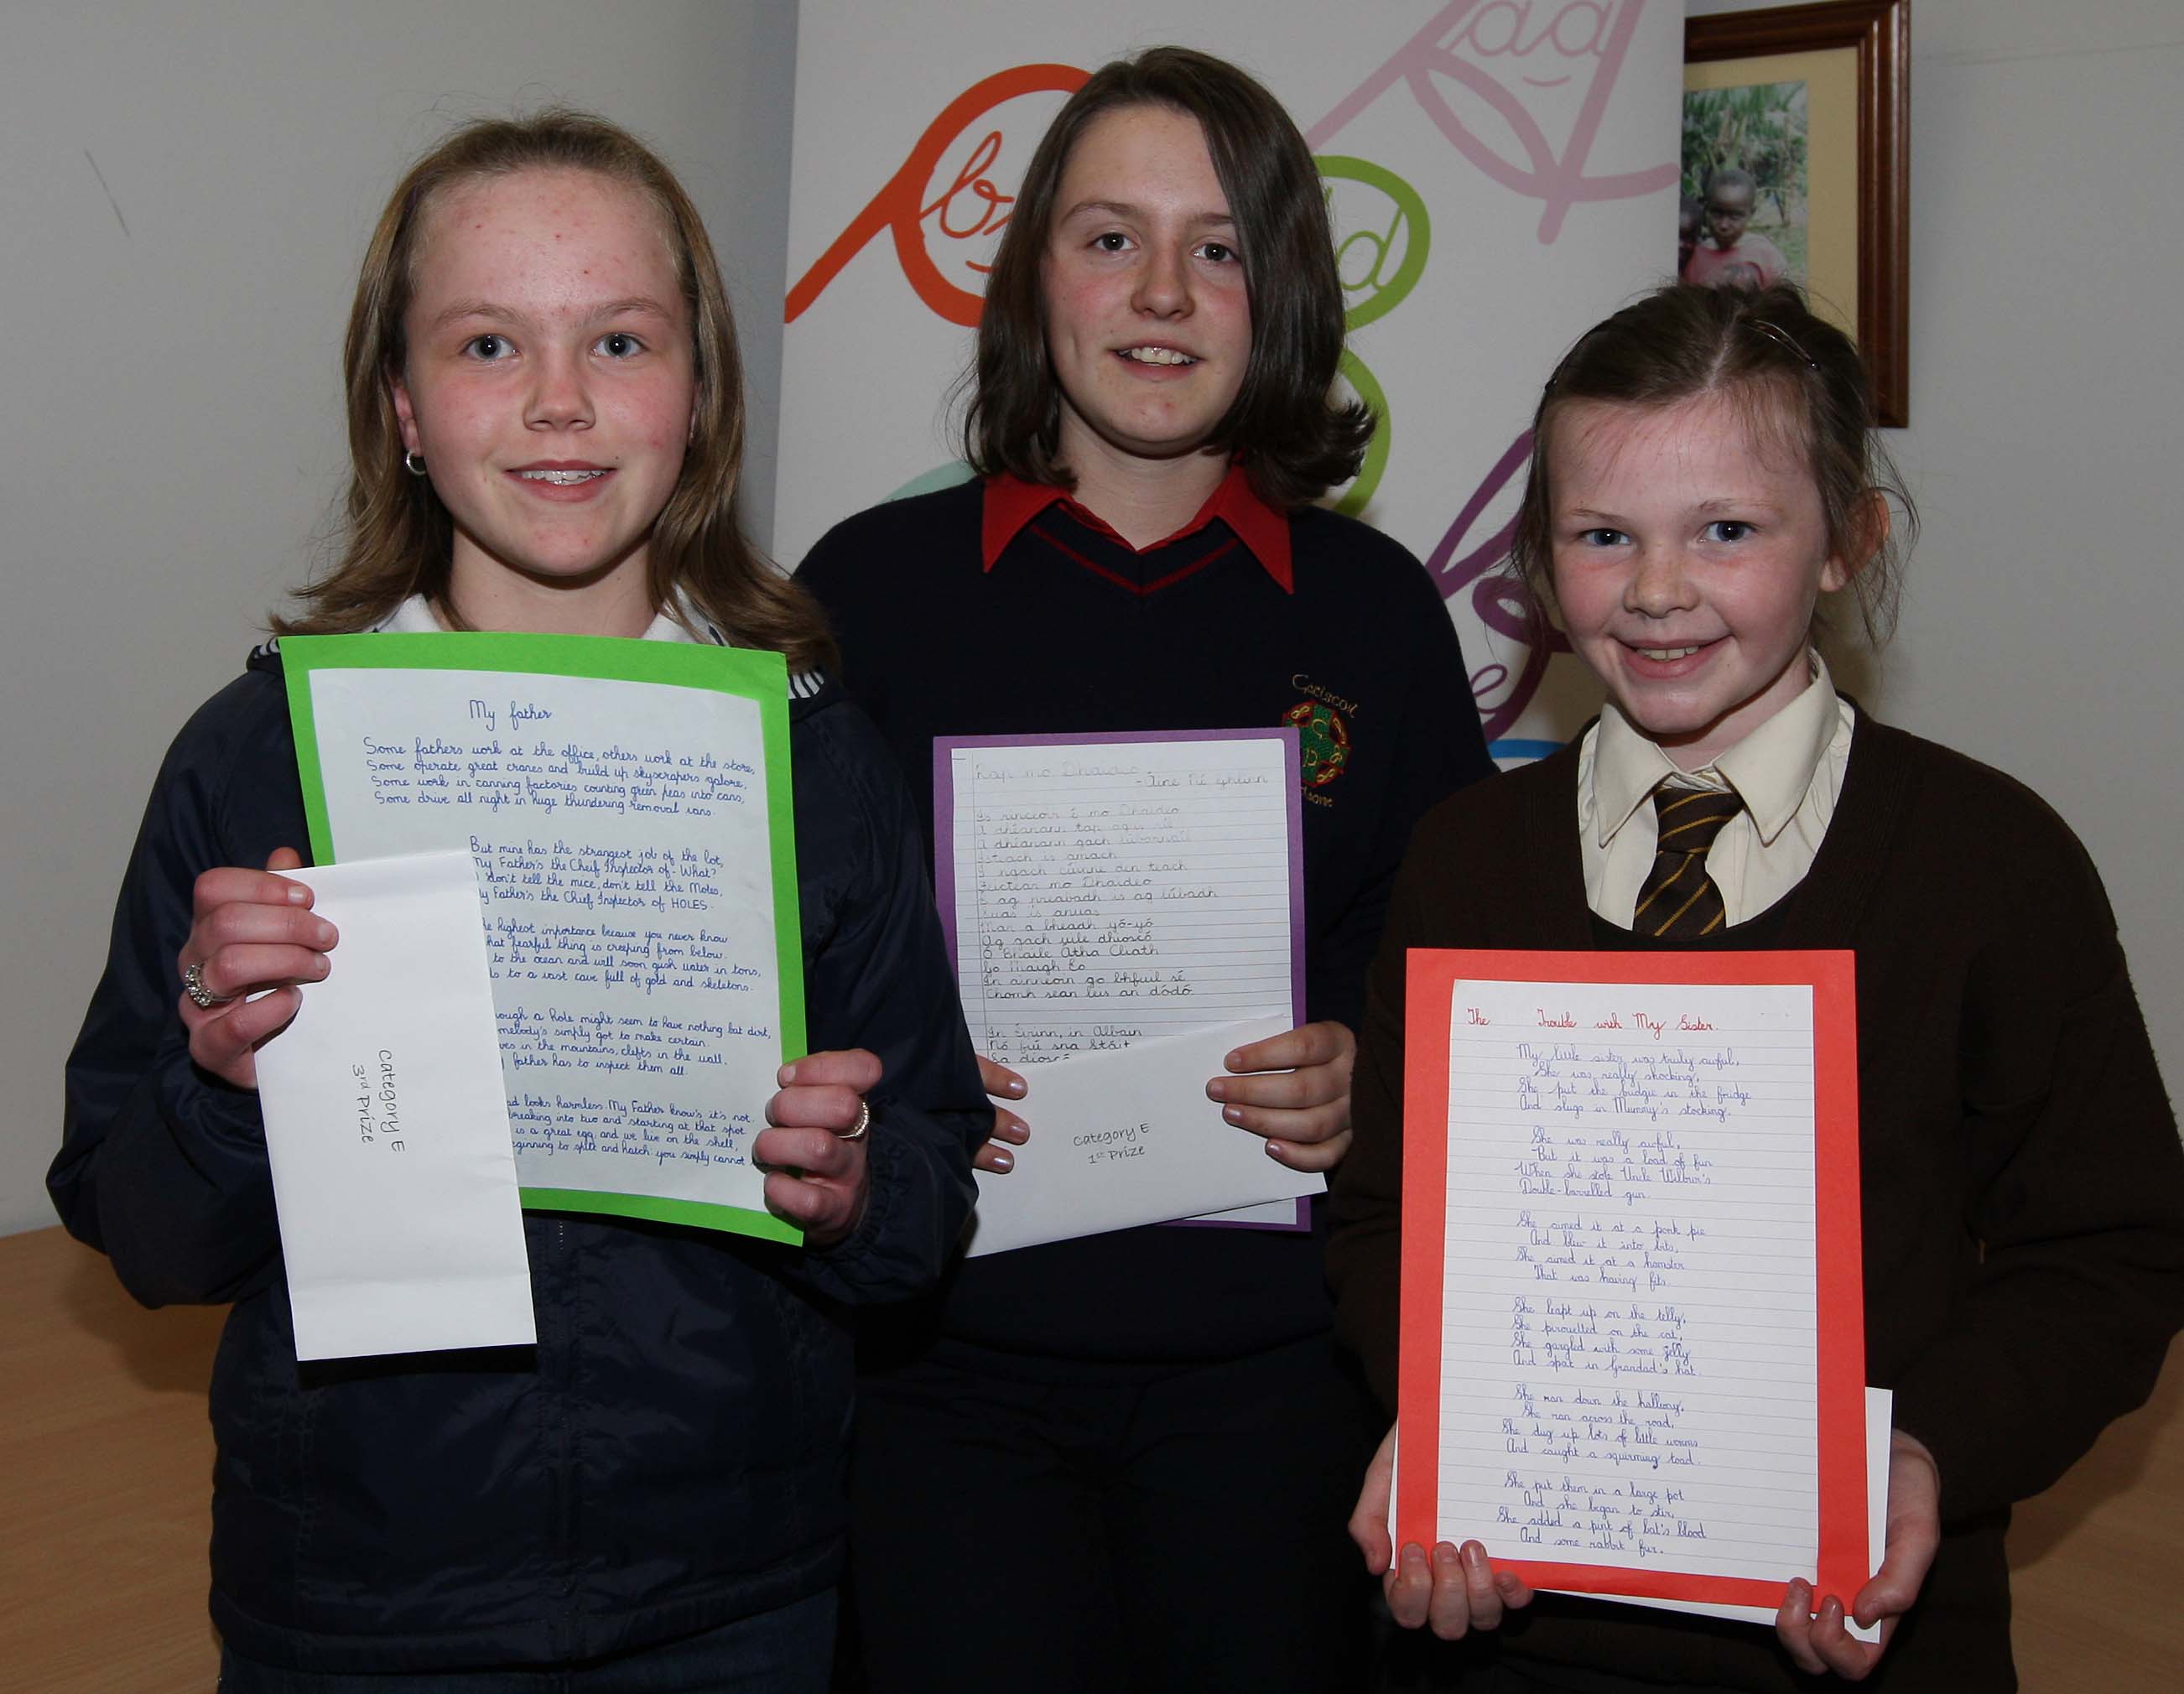 My father
Some fathers work at the office, others work at the store,
Some operate great cranes and build up skyscrapers galore,
Some work in canning factories counting green peas into cans,
Some drive all night in huge thundering removal vans.
But mine has the strangest job of the lot,
My Father's the Cheif Inspector of - What?
don't tell the mice, don't tell the Moles,
My Father's the Chief Inspector of HOLES.
highest importance because you never know
hat fearful thing is creeping from below.
to the ocean and will soon gush water in tons,
to a vast cave full of gold and skeletons.
ough a hole might seem to have nothing but dirt,
mebody's simply got to make certain.
ves in the mountains, clefts in the wall.
father has to inspect them all.
ad looks harmless. My Father knows it's not.
breaking into two and starting at that spot
is a great egg and we live on the shell,
eginning to split and hatch you simply cannot
Category E
3rd Prize
Rap mo Dhaideo
- Áine Ní Ghlinn
Is rinceoir é mo Dhaideo
A dhéanann tap agus
A dhéanann gach
Isteach is amach
I ngach cúinne den teach
Feictear mo Dhaideo
É ag preabadh is ag lúbadh
Suas is anuas
Mar a bheadh yó-yó
Ag gach uile dhioscó
Ó Bhaile Átha Cliath
Go Maigh Eo
In ainneoin go bhfuil sé
Chomh sean leis an dódó
In Éirinn, in Albain
Nó fiú sna Stáit
Sa dioscó
Category E
1st Prize
Gaelscoil
The Trouble with My Sister.
My little sister was truly awful,
She was really shocking,
She put the budgie in the fridge
And slugs in Mummy's stocking.
She was really awful,
But it was a load of fun
When she stole Uncle Wilbur's
Double-barrelled gun.
She aimed it at a pork pie
And blew it into bits,
She aimed it at a hamster
That was having fits.
She leapt up on the telly,
She pirouetted on the cat,
She gargled with some jelly
And spat in Grandad's hat.
She ran down the hallway,
She ran across the road,
She dug up lots of little worms
And caught a squirming toad.
She put them in a large pot
And she began to stir,
She added a pint of bat's blood
And some rabbit fur.